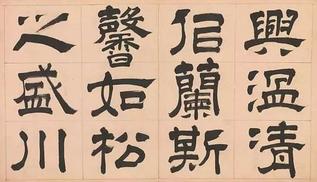 興溫清
似蘭斯
馨如松
之盛川